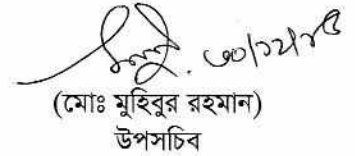 ৩০/১২/১৫
(মোঃ মুহিবুর রহমান)
উপসচিব